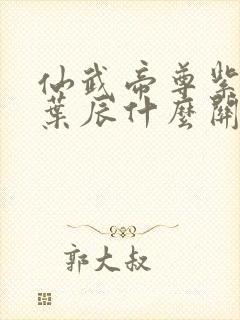 仙武帝尊紫
葉辰什麼關
郭大叔